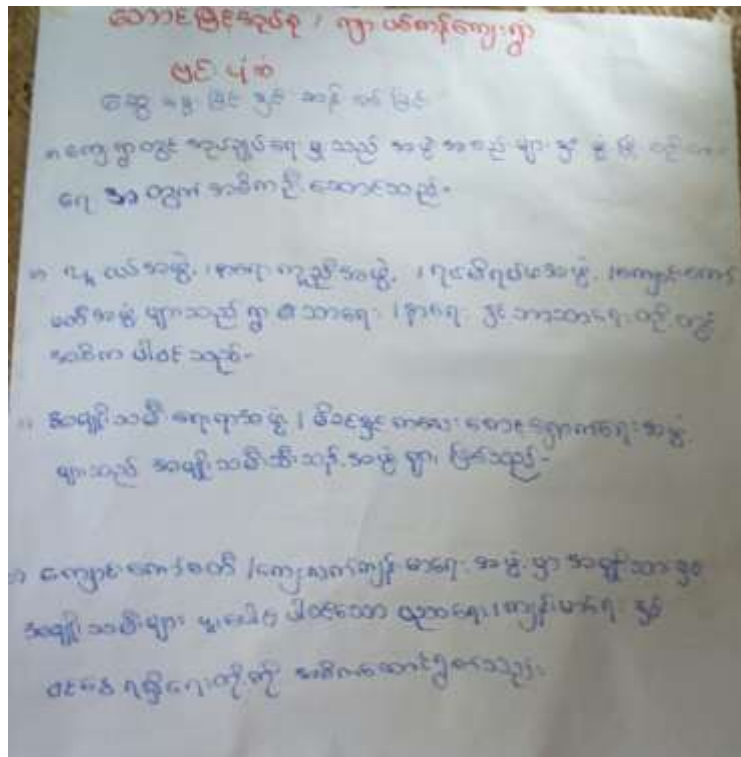 တောင်မြင့်အုပ်စု / ကျာပင်ကန်ကျေးရွာ
ဗင်းပုံစံ
ဆွေးနွေးခြင်းနှင့် ဆန်းစစ်ခြင်း
ကျေးရွာတွင် အုပ်ချုပ်ရေးမှူးသည် အဖွဲ့အစည်းများနှင့် ဖွံ့ဖြိုး
ရေးအတွက် အဓိကဦးဆောင်သည်။
လူငယ်အဖွဲ့၊ နာရေးကူညီမှုအဖွဲ့၊ ရပ်မိရပ်ဖအဖွဲ့၊ ကျောင်းကော်
မတီအဖွဲ့များသည် ရွာ၏သာရေး၊ နာရေးနှင့် ဘာသာရေးတို့တွင်
အဓိကပါဝင်သည်။
အမျိုးသမီးရေးရာအဖွဲ့၊ မိခင်နှင့်ကလေးစောင့်ရှောက်ရေးအဖွဲ့
များသည် အမျိုးသမီးသီးသန့်အဖွဲ့များဖြစ်သည်။
ကျောင်းကော်မတီ၊ ကျေးလက်ကျန်းမာရေးအဖွဲ့မှာ အမျိုးသားနှင့်
အမျိုးသမီးများ ပူးပေါင်းပါဝင်သော ပညာရေး၊ ကျန်းမာရေးနှင့်
ဝင်ငွေရရှိရေးတို့ကို အဓိကဆောင်ရွက်သည်။